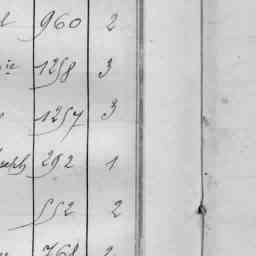 960 2
1258 3
1257 3
292 1
552 2
768 2